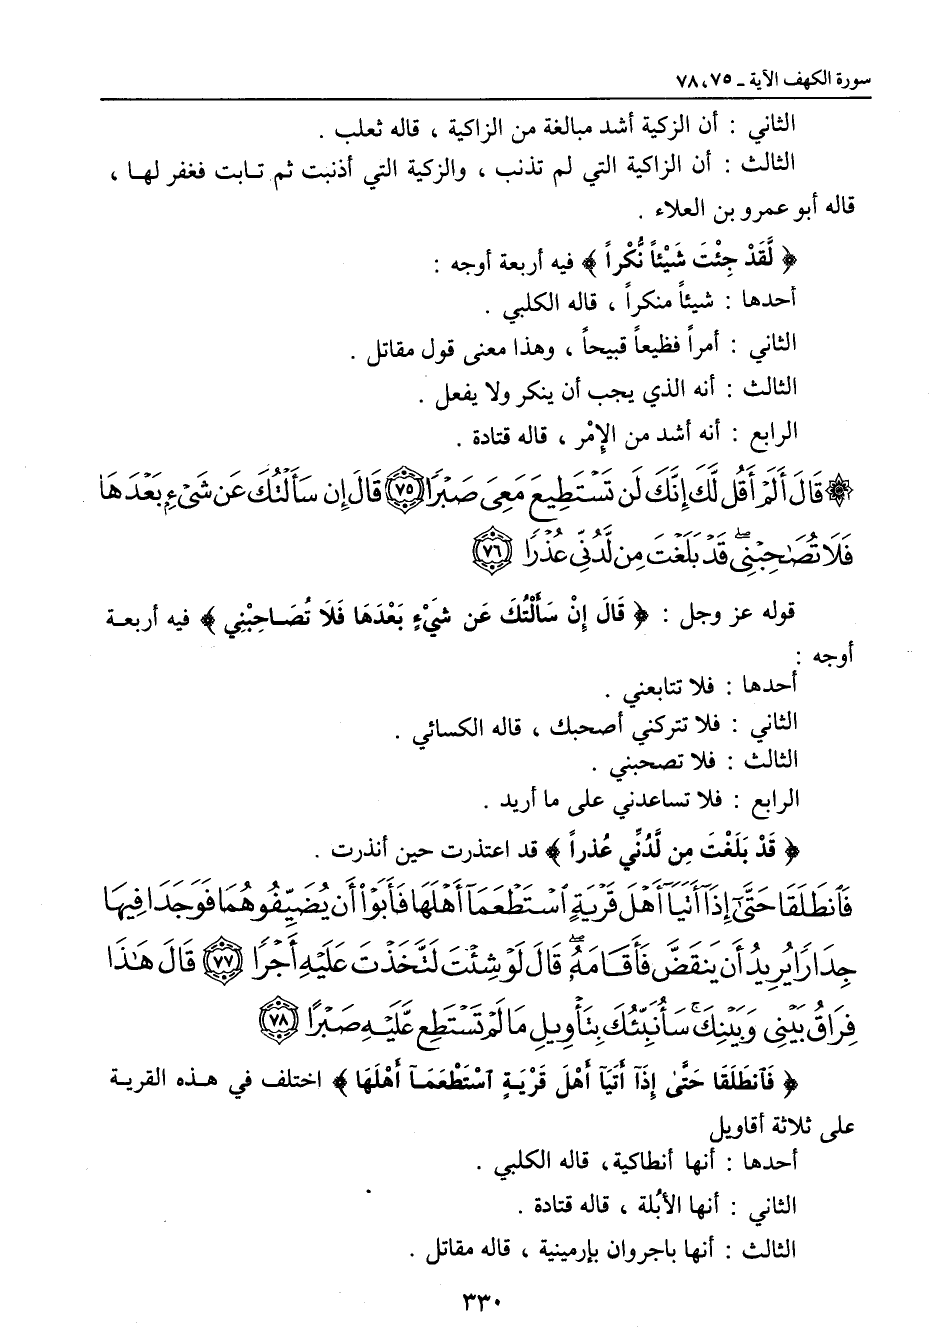 سورة الكهف الآية ـ ٧٥، ٧٨
الثاني : أن الزكية أشد مبالغة من الزاكية ، قاله ثعلب .
الثالث : أن الزاكية التي لم تذنب ، والزكية التي أذنبت ثم تابت فغفر لها ،
قاله أبو عمرو بن العلاء .
﴿ لَّقَدْ جِئْتَ شَيْئاً نُّكْراً ﴾ فيه أربعة أوجه :
أحدها : شيئاً منكراً ، قاله الكلبي .
الثاني : أمراً فظيعاً قبيحاً ، وهذا معنى قول مقاتل .
الثالث : أنه الذي يجب أن ينكر ولا يفعل .
الرابع : أنه أشد من الإِمْر ، قاله قتادة .
۞ قَالَ أَلَمْ أَقُل لَّكَ إِنَّكَ لَن تَسْتَطِيعَ مَعِيَ صَبْرًا ٧٥ قَالَ إِن سَأَلْتُكَ عَن شَيْءٍ بَعْدَهَا
فَلَا تُصَٰحِبْنِي ۖ قَدْ بَلَغْتَ مِن لَّدُنِّي عُذْرًا ٧٦
قوله عز وجل : ﴿ قَالَ إِنْ سَأَلْتُكَ عَن شَيْءٍ بَعْدَهَا فَلَا تُصَاحِبْنِي ﴾ فيه أربعة
أوجه :
أحدها : فلا تتابعني .
الثاني : فلا تتركني أصحبك ، قاله الكسائي .
الثالث : فلا تصحبني .
الرابع : فلا تساعدني على ما أريد .
﴿ قَدْ بَلَغْتَ مِن لَّدُنِّي عُذراً ﴾ قد اعتذرت حين أنذرت .
فَٱنطَلَقَا حَتَّىٰٓ إِذَآ أَتَيَآ أَهْلَ قَرْيَةٍ ٱسْتَطْعَمَآ أَهْلَهَا فَأَبَوْا۟ أَن يُضَيِّفُوهُمَا فَوَجَدَا فِيهَا
جِدَارًا يُرِيدُ أَن يَنقَضَّ فَأَقَامَهُۥ ۖ قَالَ لَوْ شِئْتَ لَتَّخَذْتَ عَلَيْهِ أَجْرًا ٧٧ قَالَ هَٰذَا
فِرَاقُ بَيْنِي وَبَيْنِكَ ۚ سَأُنَبِّئُكَ بِتَأْوِيلِ مَا لَمْ تَسْتَطِع عَّلَيْهِ صَبْرًا ٧٨
﴿ فَٱنطَلَقَا حَتَّىٰ إِذَآ أَتَيَآ أَهْلَ قَرْيَةٍ ٱسْتَطْعَمَآ أَهْلَهَا ﴾ اختلف في هذه القرية
على ثلاثة أقاويل
أحدها : أنها أنطاكية، قاله الكلبي .
الثاني : أنها الأبُلة ، قاله قتادة .
الثالث : أنها باجروان بإرمينية ، قاله مقاتل .
٣٣٠